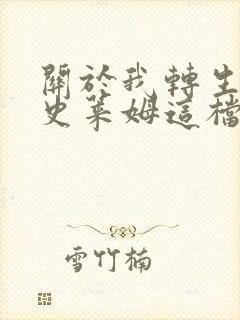 關於我轉生
史萊姆這檔
雪竹楠